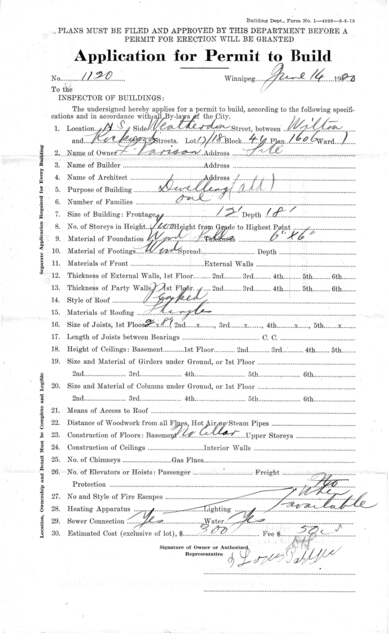 Building Dept., Form No. 1
PLANS MUST BE FILED AND APPROVED BY THIS DEPARTMENT BEFORE A
PERMIT FOR ERECTION WILL BE GRANTED
Application for Permit to Build
No. 1120 Winnipeg, June 14
To the
INSPECTOR OF BUILDINGS:
The undersigned hereby applies for a permit to build, according to the following specifi-
cations and in accordance with all By-laws of the City.
1. Location, Side Street, between Wilton
and Streets. Lot 17/18 Block 46 Plan 1606 Ward 1
2. Name of Owner Address
3. Name of Builder Address
4. Name of Architect Address
5. Purpose of Building Dwelling
6. Number of Families one
7. Size of Building: Frontage 12' Depth 18'
8. No. of Storeys in Height Height from Grade to Highest Point
9. Material of Foundation Wood Thickness 6" x 6"
10. Material of Footings Wood Spread Depth
11. Materials of Front External Walls
12. Thickness of External Walls, 1st Floor 2nd 3rd 4th 5th 6th
13. Thickness of Party Walls, 1st Floor 2nd 3rd 4th 5th 6th
14. Style of Roof Pitched
15. Materials of Roofing Shingles
16. Size of Joists, 1st Floor 2 x 8 2nd x 3rd x 4th x 5th x
17. Length of Joists between Bearings C. C.
18. Height of Ceilings: Basement 1st Floor 2nd 3rd 4th 5th
19. Size and Material of Girders under Ground, or 1st Floor
2nd 3rd 4th 5th 6th
20. Size and Material of Columns under Ground, or 1st Floor
2nd 3rd 4th 5th 6th
21. Means of Access to Roof
22. Distance of Woodwork from all Flues, Hot Air or Steam Pipes
23. Construction of Floors: Basement No Cellar Upper Storeys
24. Construction of Ceilings Interior Walls
25. No. of Chimneys Gas Flues
26. No. of Elevators or Hoists: Passenger Freight
Protection
27. No and Style of Fire Escapes when
28. Heating Apparatus Lighting available
29. Sewer Connection Yes Water Yes
30. Estimated Cost (exclusive of lot), $ 300 Fee $
Signature of Owner or Authorized
Representative
Separate Application Required for Every Building
Location, Ownership and Detail Must be Complete and Legible